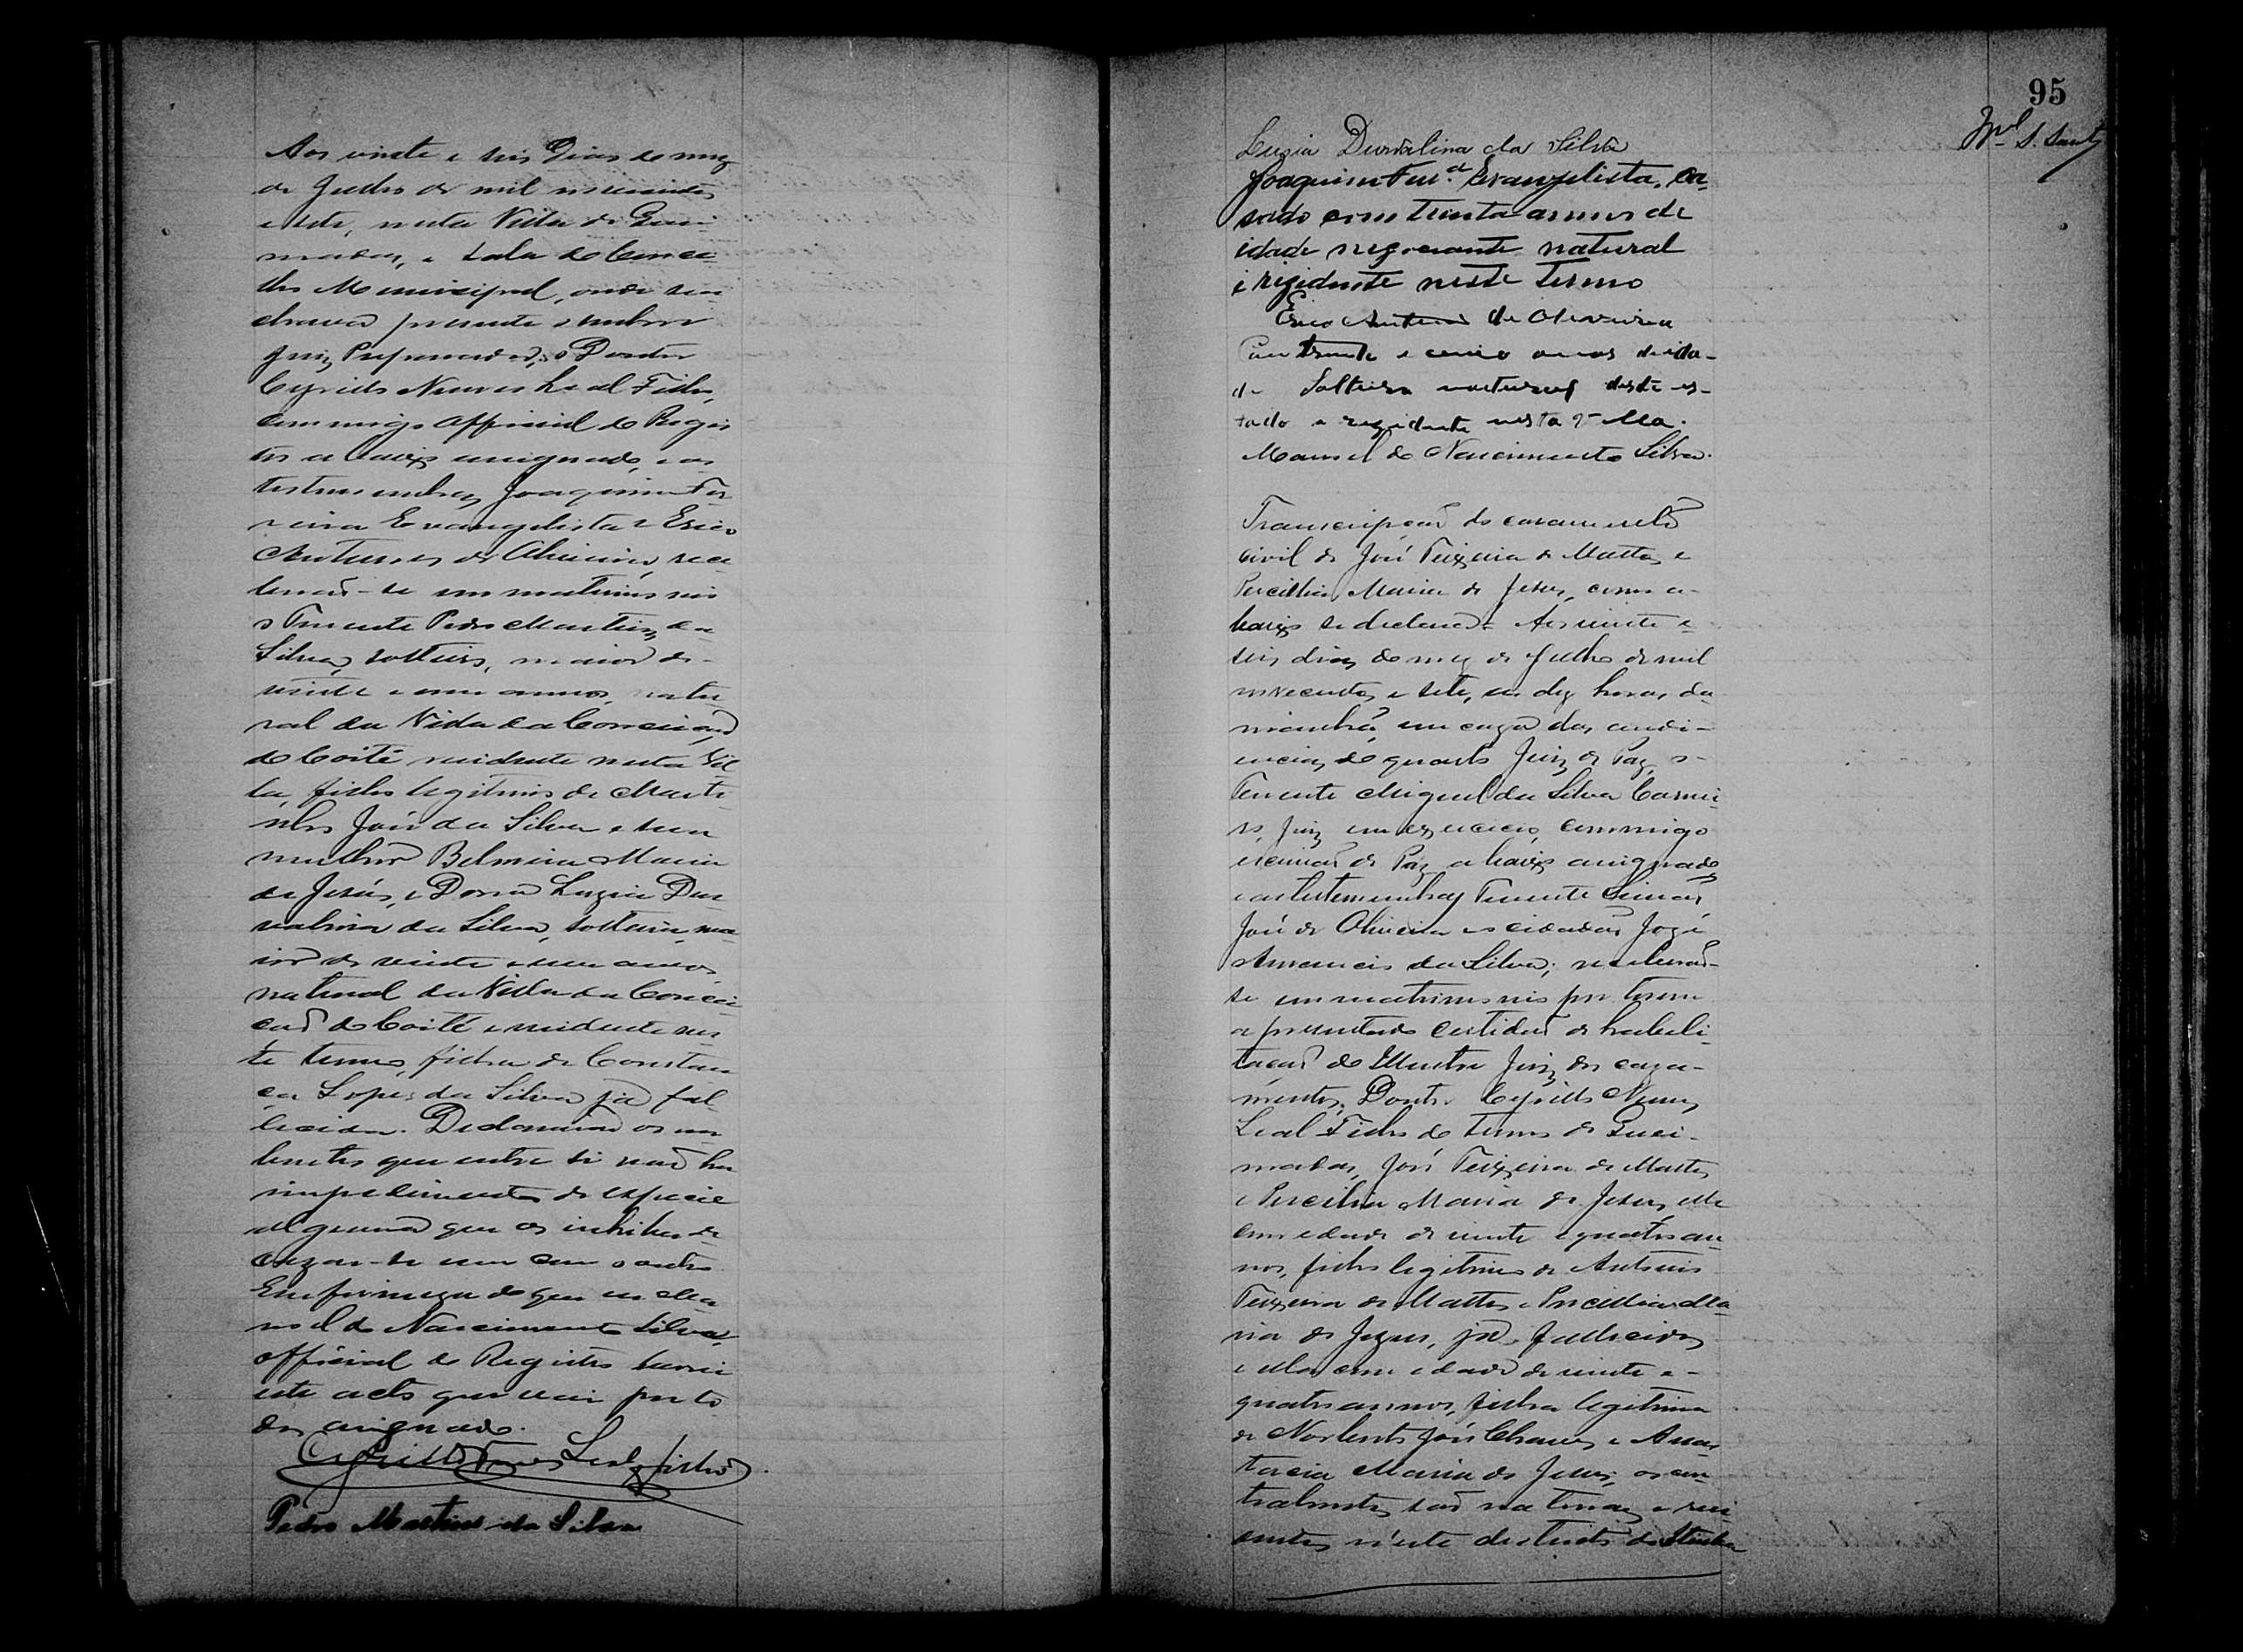 Aos vinte e seis dias do mez
de Julho de mil novecentos
e sete, nesta Villa de Quei-
madas, e sala do Conce-
lho Municipal, onde se a-
chava presente o senhor
Juiz Preparador, o Doutor
Cyrillo Nunes Leal Filho,
commigo official do Regis-
tro abaixo assignado, e as
testemunhas Joaquim Fer-
reira Evangelista e Erico
Antunes de Oliveira, rece-
berão-se em matrimonio
o Tenente Pedro Martins da
Silva, solteiro, maior de
vinte e um annos, natu-
ral da Villa da Conceição
do Coité residente nesta Vil-
la, filho legitimo de Marti-
nho José da Silva e sua
mulher Belmira Maria
de Jesús, e Dona Luzia Dur-
valina da Silva, solteira, ma-
ior de vinte e um annos
natural da Villa da Concei-
ção do Coité e residente nes-
te termo, filha de Constan-
ça Lopes da Silva já fal-
lecida. Declararão os nu-
bentes que entre si não ha
impedimento de especie
alguma que os inhiba de
cazar-se um com o outro.
Em firmeza do que eu Ma-
noel do Nascimento Silva,
official do Registro lavrei
este acto que vai por to-
dos assignado.
Cyrillo Nunes Leal Filho.
Pedro Martins da Silva
95
Luzia Durvalina da Silva
Joaquim Ferr.ª Evangelista, ca-
sado com trinta annos de
idade negociante natural
e rezidente neste termo
Erico Antunes de Oliveira
Com trinta e cinco annos de ida-
de Solteiro natural deste es-
tado e rezidente nesta Villa.
Manoel do Nascimento Silva.
Transcripção do casamento
civil de José Teixeira de Mattos e
Percillia Maria de Jesus, como a-
baixo se declara: Aos vinte e
seis dias do mez de Julho de mil
novecentos e sete, as dez horas da
manhã, em caza das audi-
encias do quarto Juiz de Paz, o
Tenente Miguel da Silva Carnei-
ro, Juiz em exercicio, commigo
escrivão de Paz abaixo assignado
e as testemunhas Tenente Simão
José de Oliveira e o cidadão José
Amancio da Silva; receberão-
se em matrimonio por terem
apresentado certidão de habili-
tação do Illustre Juiz dos caza-
mentos, Doutor Cyrillo Nunes
Leal Filho do termo de Quei-
madas, José Teixeira de Mattos
e Percilia Maria de Jesus, elle
com edade de vinte e quatro an-
nos, filho legitimo de Antonio
Teixeira de Mattos e Percillia Ma-
ria de Jezus, já fallecidos
e ella com edade de vinte e
quatro annos, filha legitima
de Norberto José Chaves e Anas-
tacia Maria de Jesus; os con-
trahentes são naturaes e resi-
dentes n'este districto do Itiuba